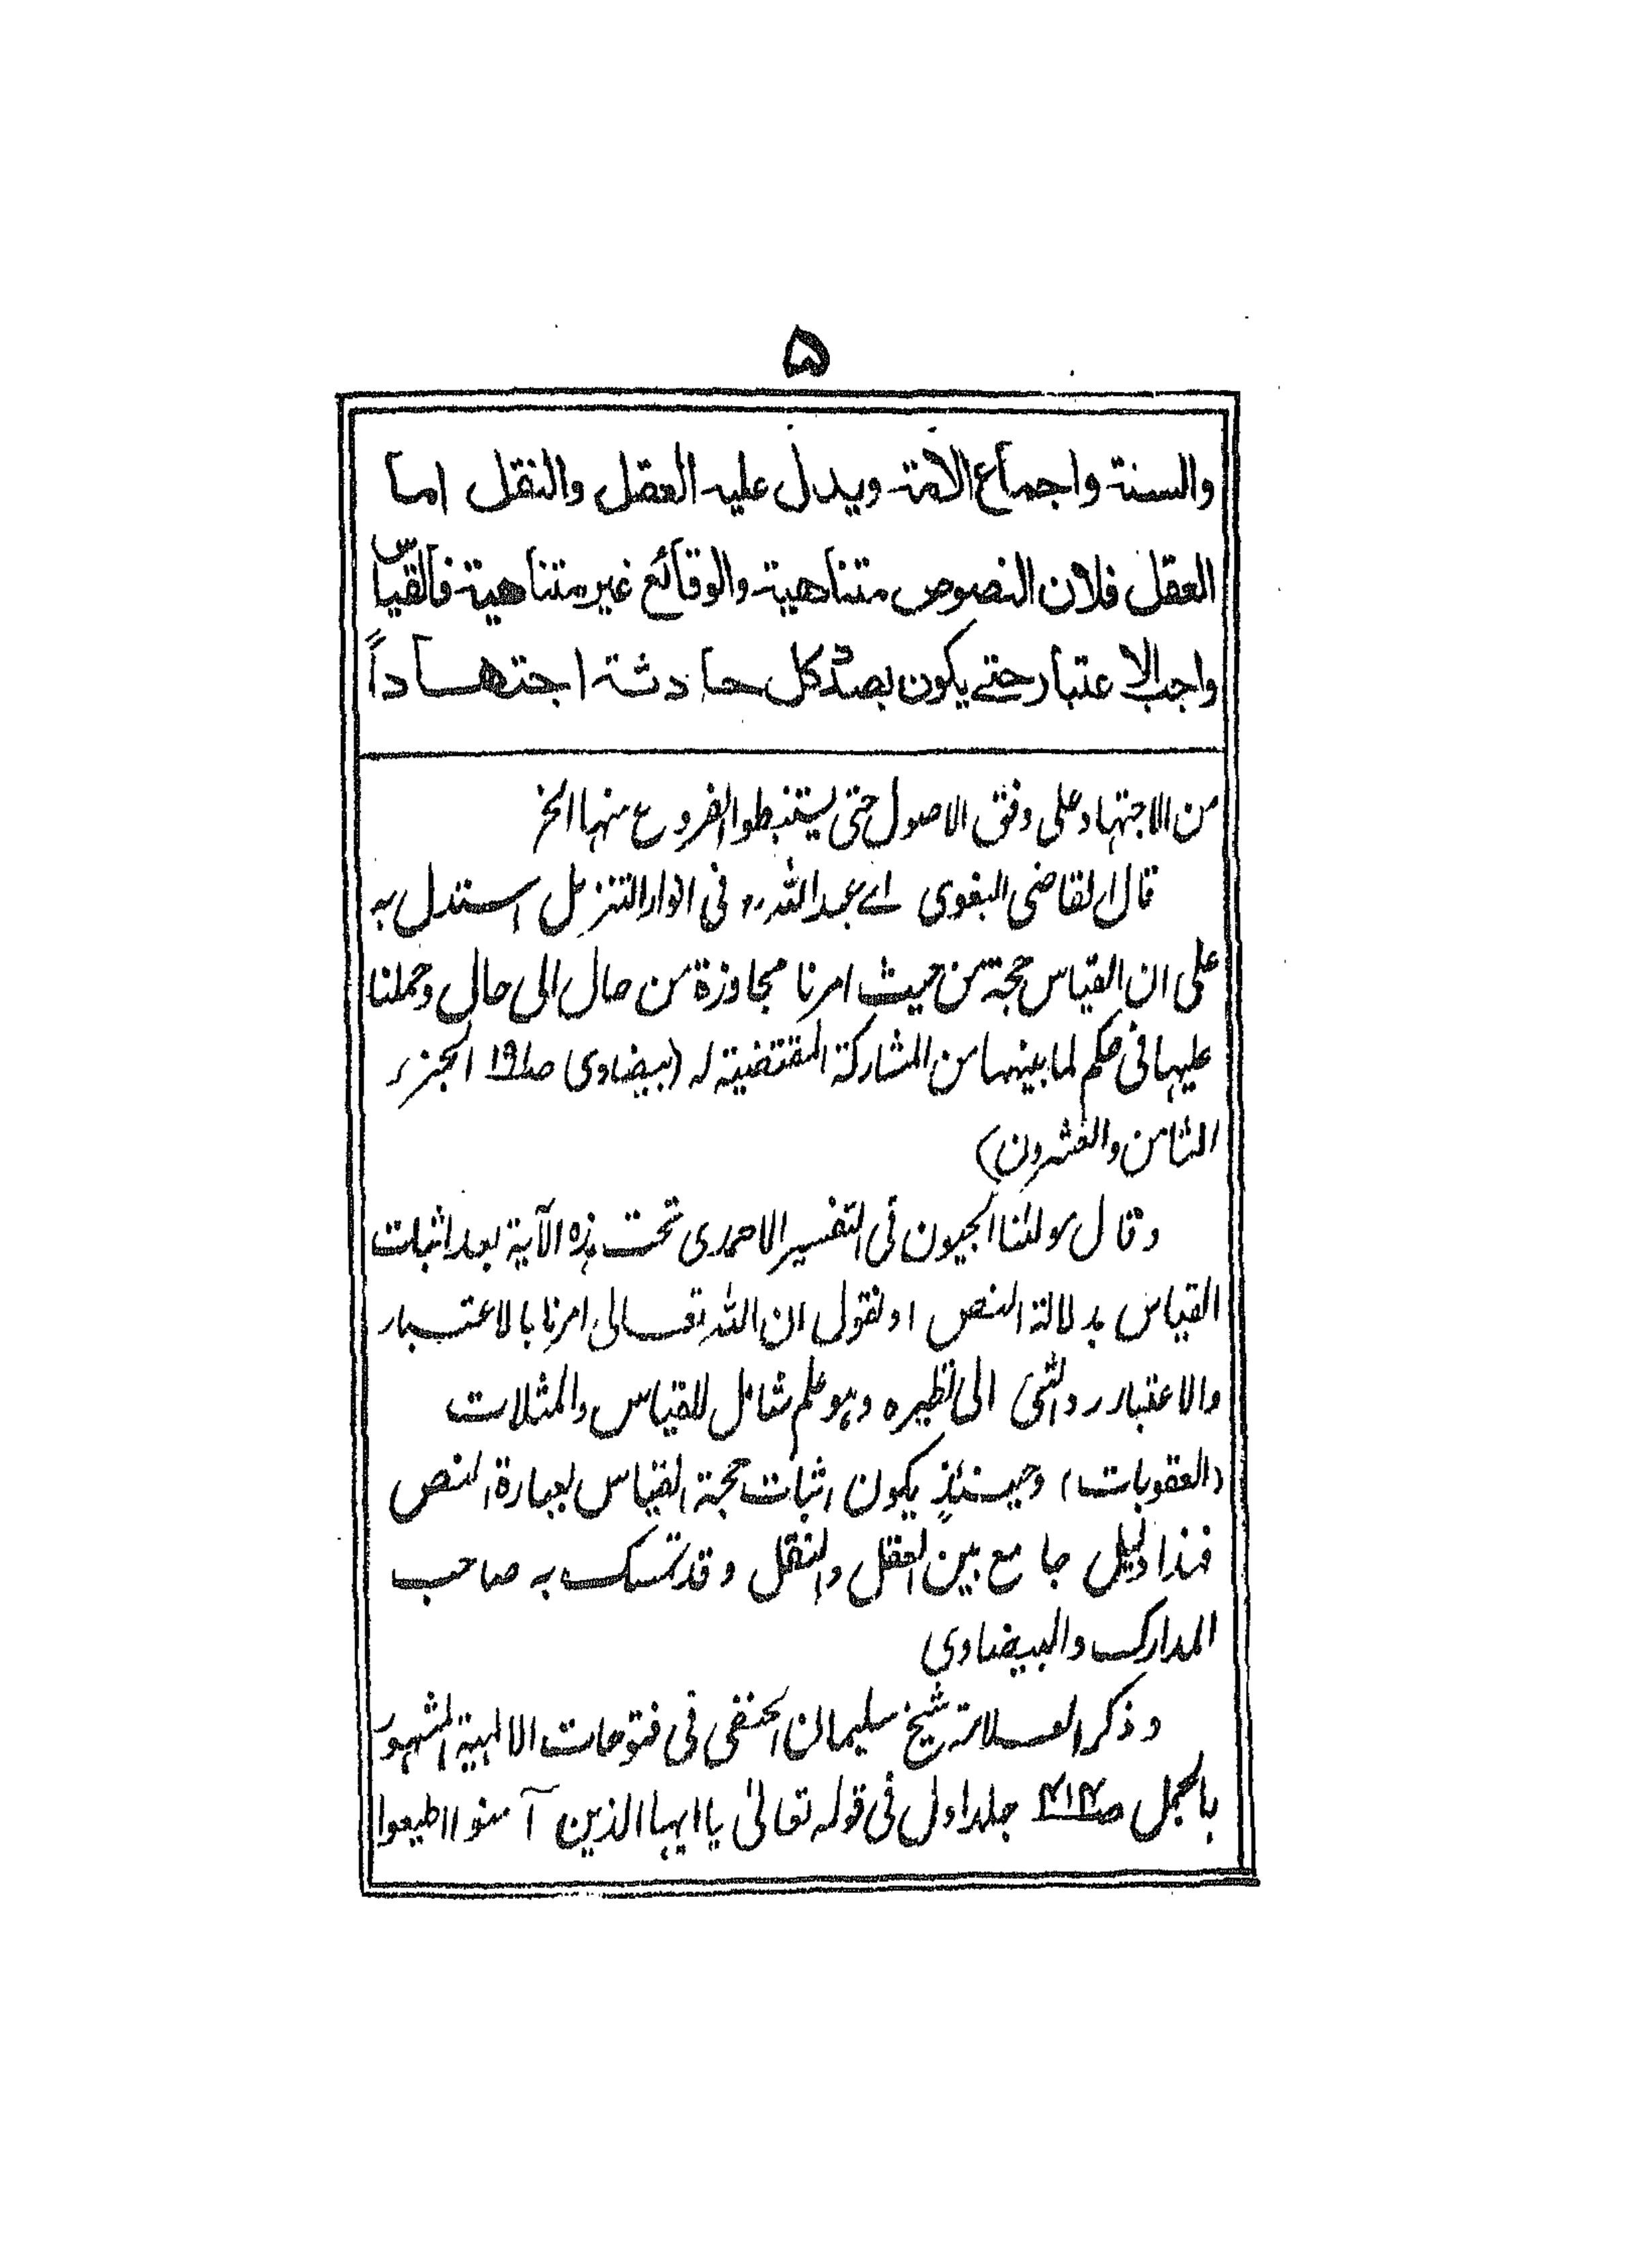 ۵
والسنة واجماع الامة ويدل عليه العقل والنقل اما
العقل فلان النصوص متناهية والوقائع غير متناهية فالقياس
واجب الاعتبار حتے يكون بصدد كل حادثة اجتهاداً
من الاجتهاد على وفق الاصول حتى يستنبطوا الفروع منها الخ
قال القاضى البغوى اے عبد الله ؒ فى انوار التنزيل استدل به
على ان القياس حجة من حيث امرنا مجاوزة من حال الى حال وحملنا
عليها فى حكم لما بينهما من المشاركة المقتضية له (بيضاوى صـ١٩١ الجزء
الثامن والعشرون)
وقال مولٰنا الجيون فى التفسير الاحمدى تحت هذه الآية بعد اثبات
القياس بدلالة النص او نقول ان الله تعالى امرنا بالاعتبار
والاعتبار رد الشئ الى نظيره وهو علم شامل للقياس والمثلات
(العقوبات) وحينئذٍ يكون اثبات حجة القياس بعبارة النص
فهذا دليل جامع بين العقل والنقل وقد تمسك به صاحب
المدارك والبيضاوى
وذكر العلامة شيخ سليمان الحنفى فى فتوحات الالهية المشهور
بالجمل صـ۴۱۴ جلد اول فى قوله تعالىٰ يا ايها الذين آمنوا اطيعوا